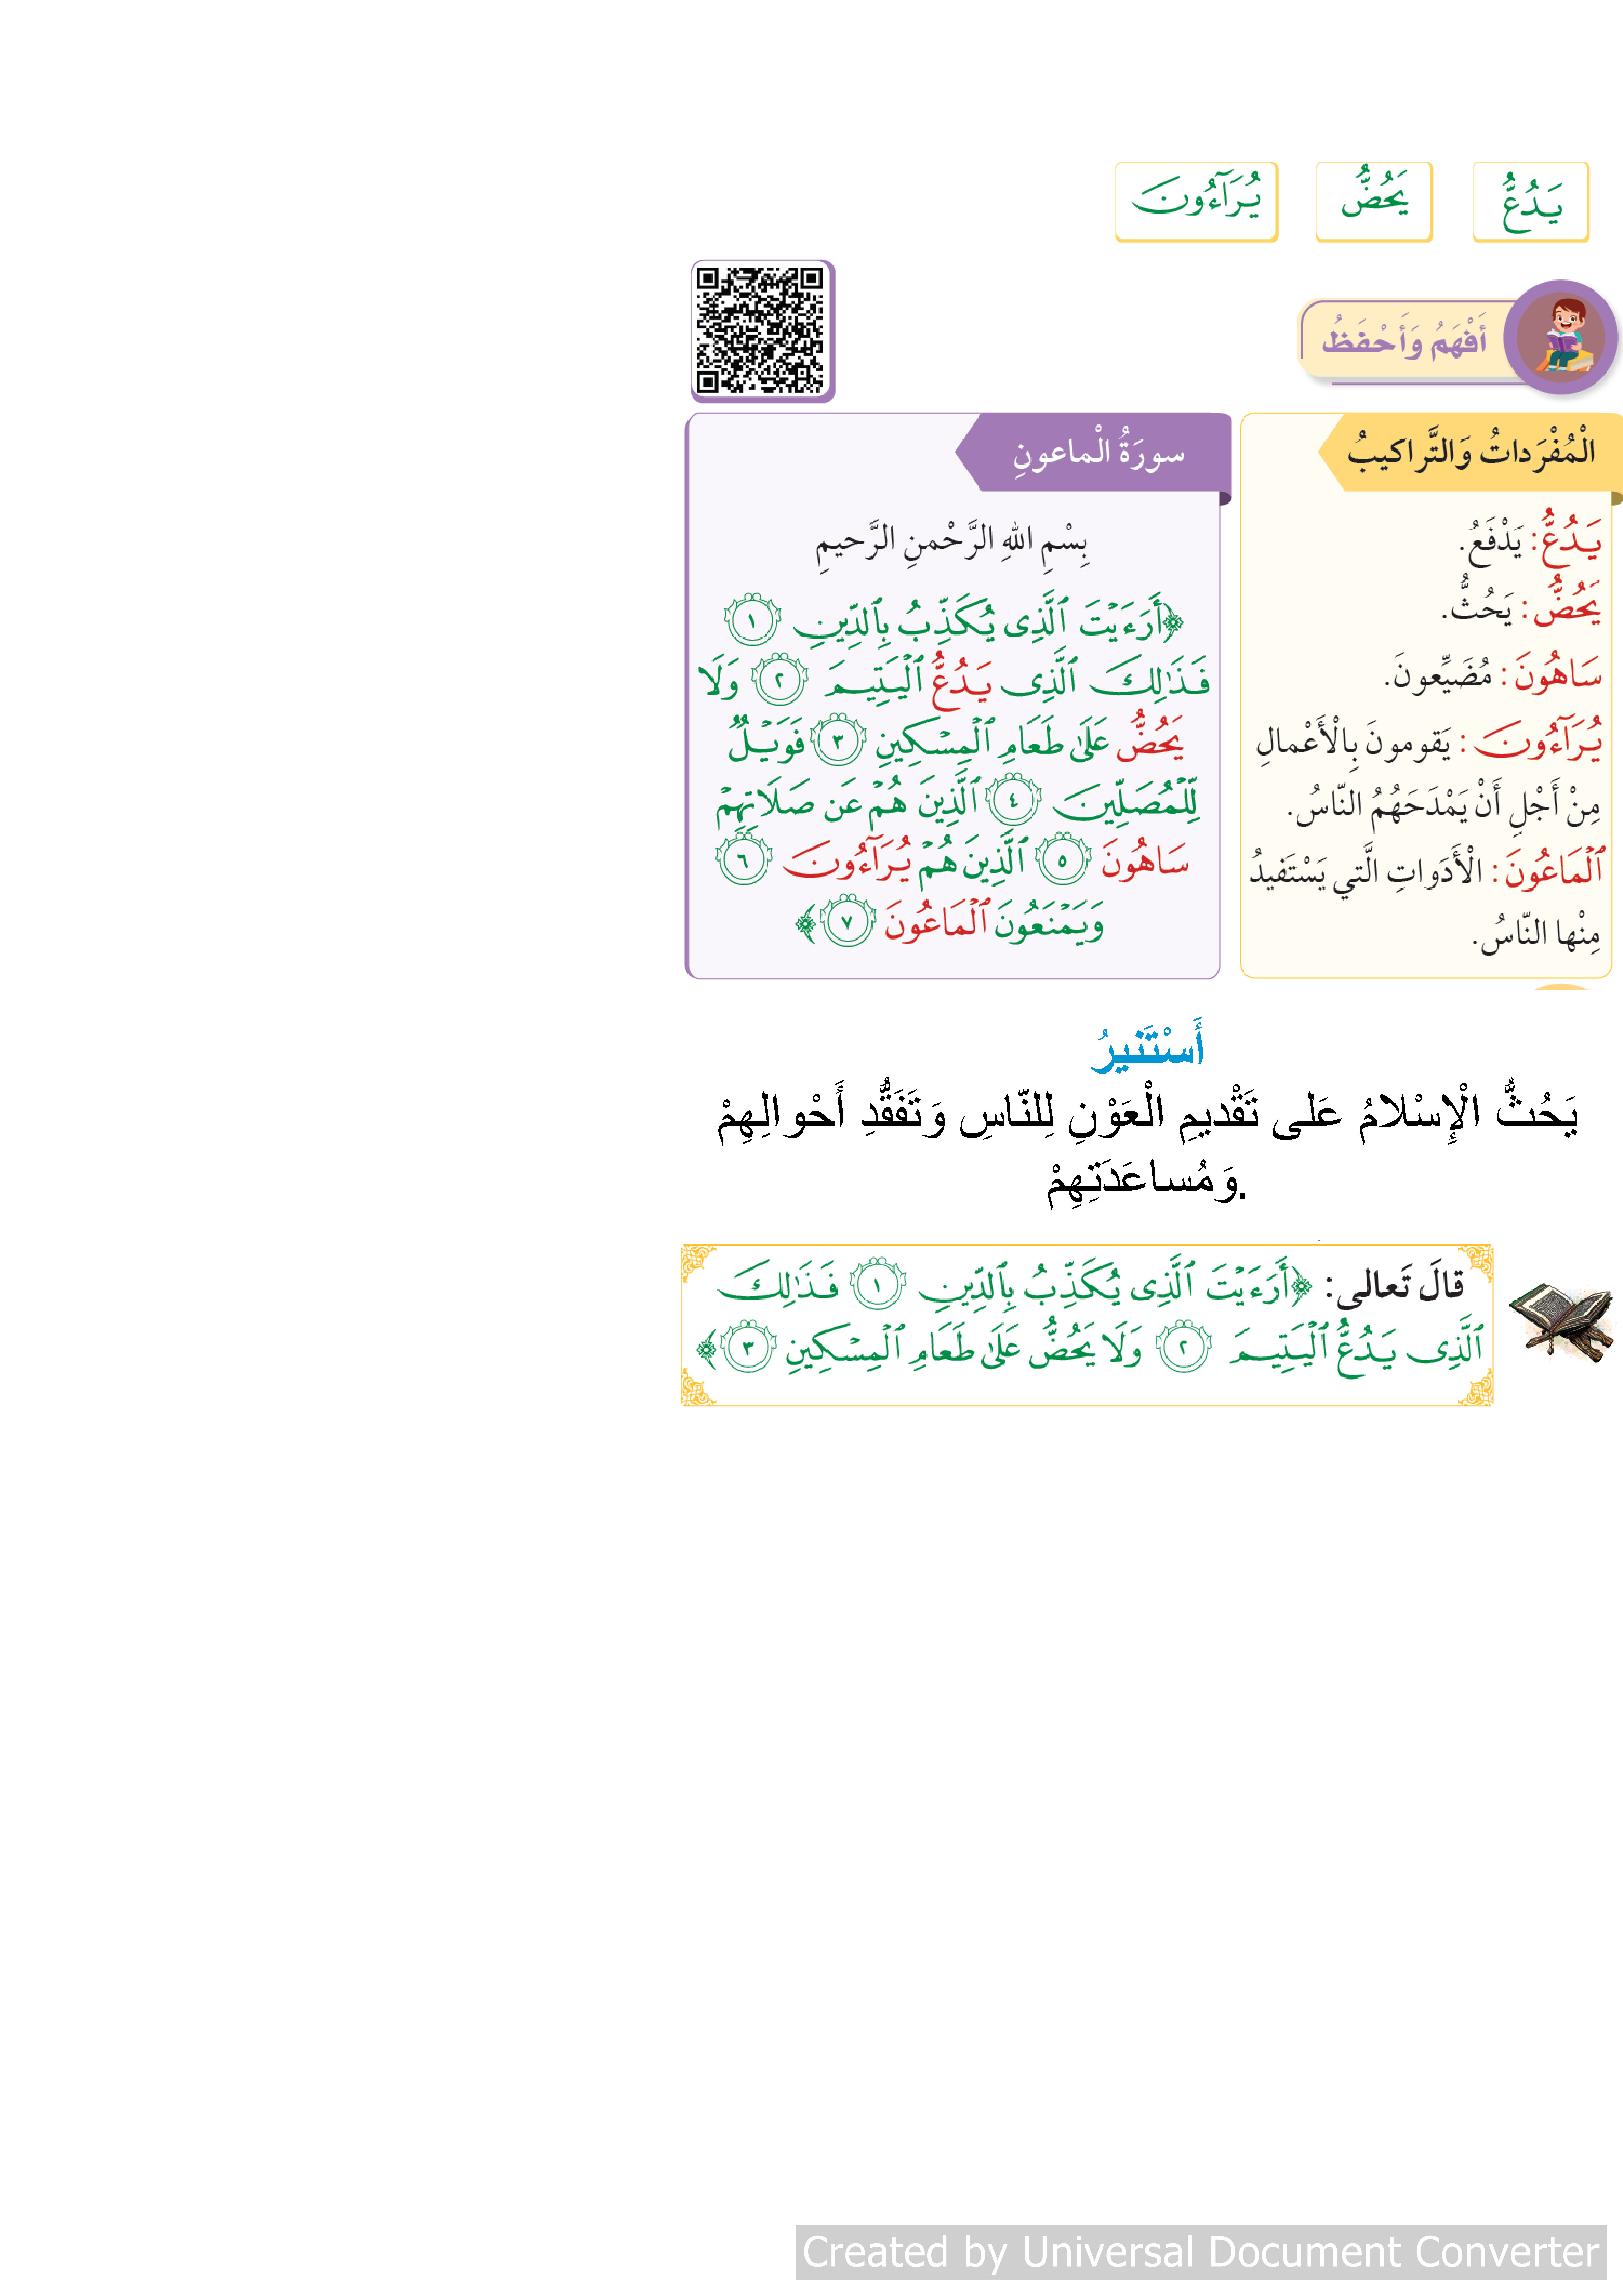 يَدُعُّ يَحُضُّ يُرَآءُونَ
أَفْهَمُ وَأَحْفَظُ
الْمُفْرَداتُ وَالتَّراكيبُ
يَدُعُّ: يَدْفَعُ.
يَحُضُّ: يَحُثُّ.
سَاهُونَ: مُضَيِّعونَ.
يُرَآءُونَ: يَقومونَ بِالْأَعْمالِ
مِنْ أَجْلِ أَنْ يَمْدَحَهُمُ النّاسُ.
ٱلْمَاعُونَ: الْأَدَواتِ الَّتي يَسْتَفيدُ
مِنْها النّاسُ.
سورَةُ الْماعونِ
بِسْمِ اللهِ الرَّحْمنِ الرَّحيمِ
﴿أَرَءَيْتَ ٱلَّذِى يُكَذِّبُ بِٱلدِّينِ ١
فَذَٰلِكَ ٱلَّذِى يَدُعُّ ٱلْيَتِيمَ ٢ وَلَا
يَحُضُّ عَلَىٰ طَعَامِ ٱلْمِسْكِينِ ٣ فَوَيْلٌ
لِّلْمُصَلِّينَ ٤ ٱلَّذِينَ هُمْ عَن صَلَاتِهِمْ
سَاهُونَ ٥ ٱلَّذِينَ هُمْ يُرَآءُونَ ٦
وَيَمْنَعُونَ ٱلْمَاعُونَ ٧﴾
أَسْتَنيرُ
يَحُثُّ الْإِسْلامُ عَلى تَقْديمِ الْعَوْنِ لِلنّاسِ وَتَفَقُّدِ أَحْوالِهِمْ
وَمُساعَدَتِهِمْ.
قالَ تَعالى: ﴿أَرَءَيْتَ ٱلَّذِى يُكَذِّبُ بِٱلدِّينِ ١ فَذَٰلِكَ
ٱلَّذِى يَدُعُّ ٱلْيَتِيمَ ٢ وَلَا يَحُضُّ عَلَىٰ طَعَامِ ٱلْمِسْكِينِ ٣﴾
Created by Universal Document Converter